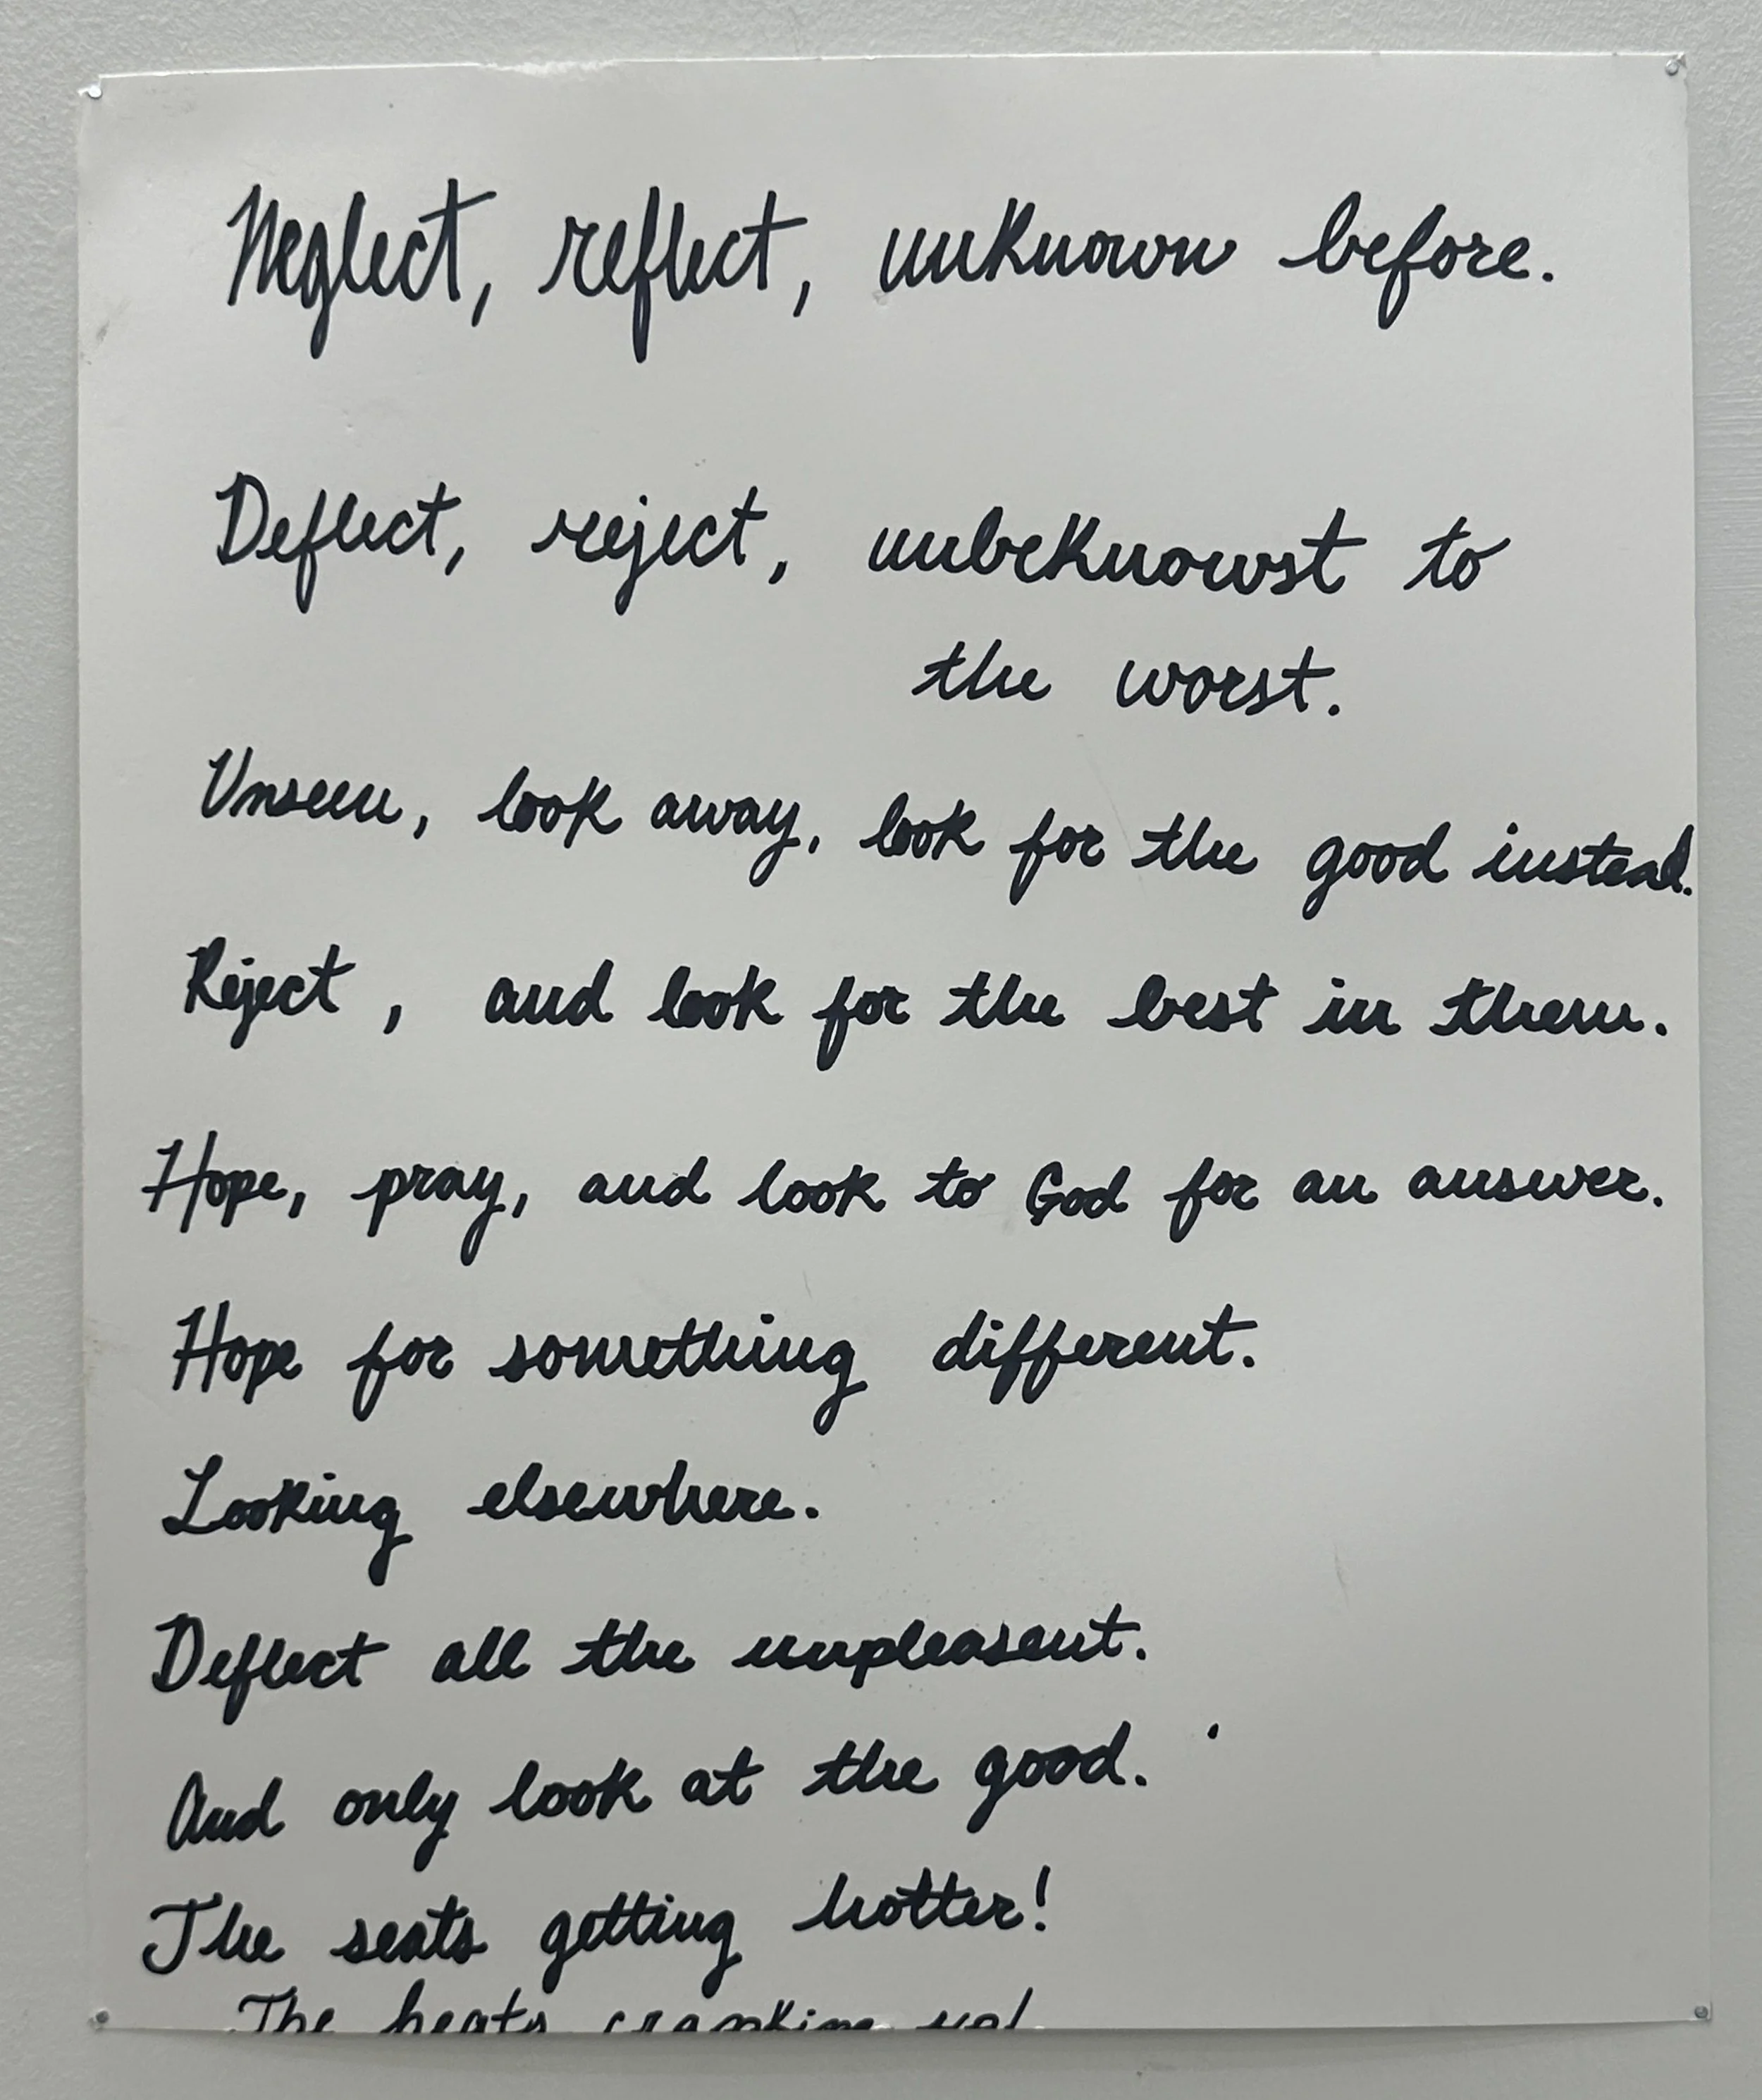 Neglect, reflect, unknown before.
Deflect, reject, unbeknowst to
the worst.
Unseen, look away, look for the good instead.
Reject, and look for the best in them.
Hope, pray, and look to God for an answer.
Hope for something different.
Looking elsewhere.
Deflect all the unpleasent.
And only look at the good.
The seats getting hotter!
The heats cranking up!